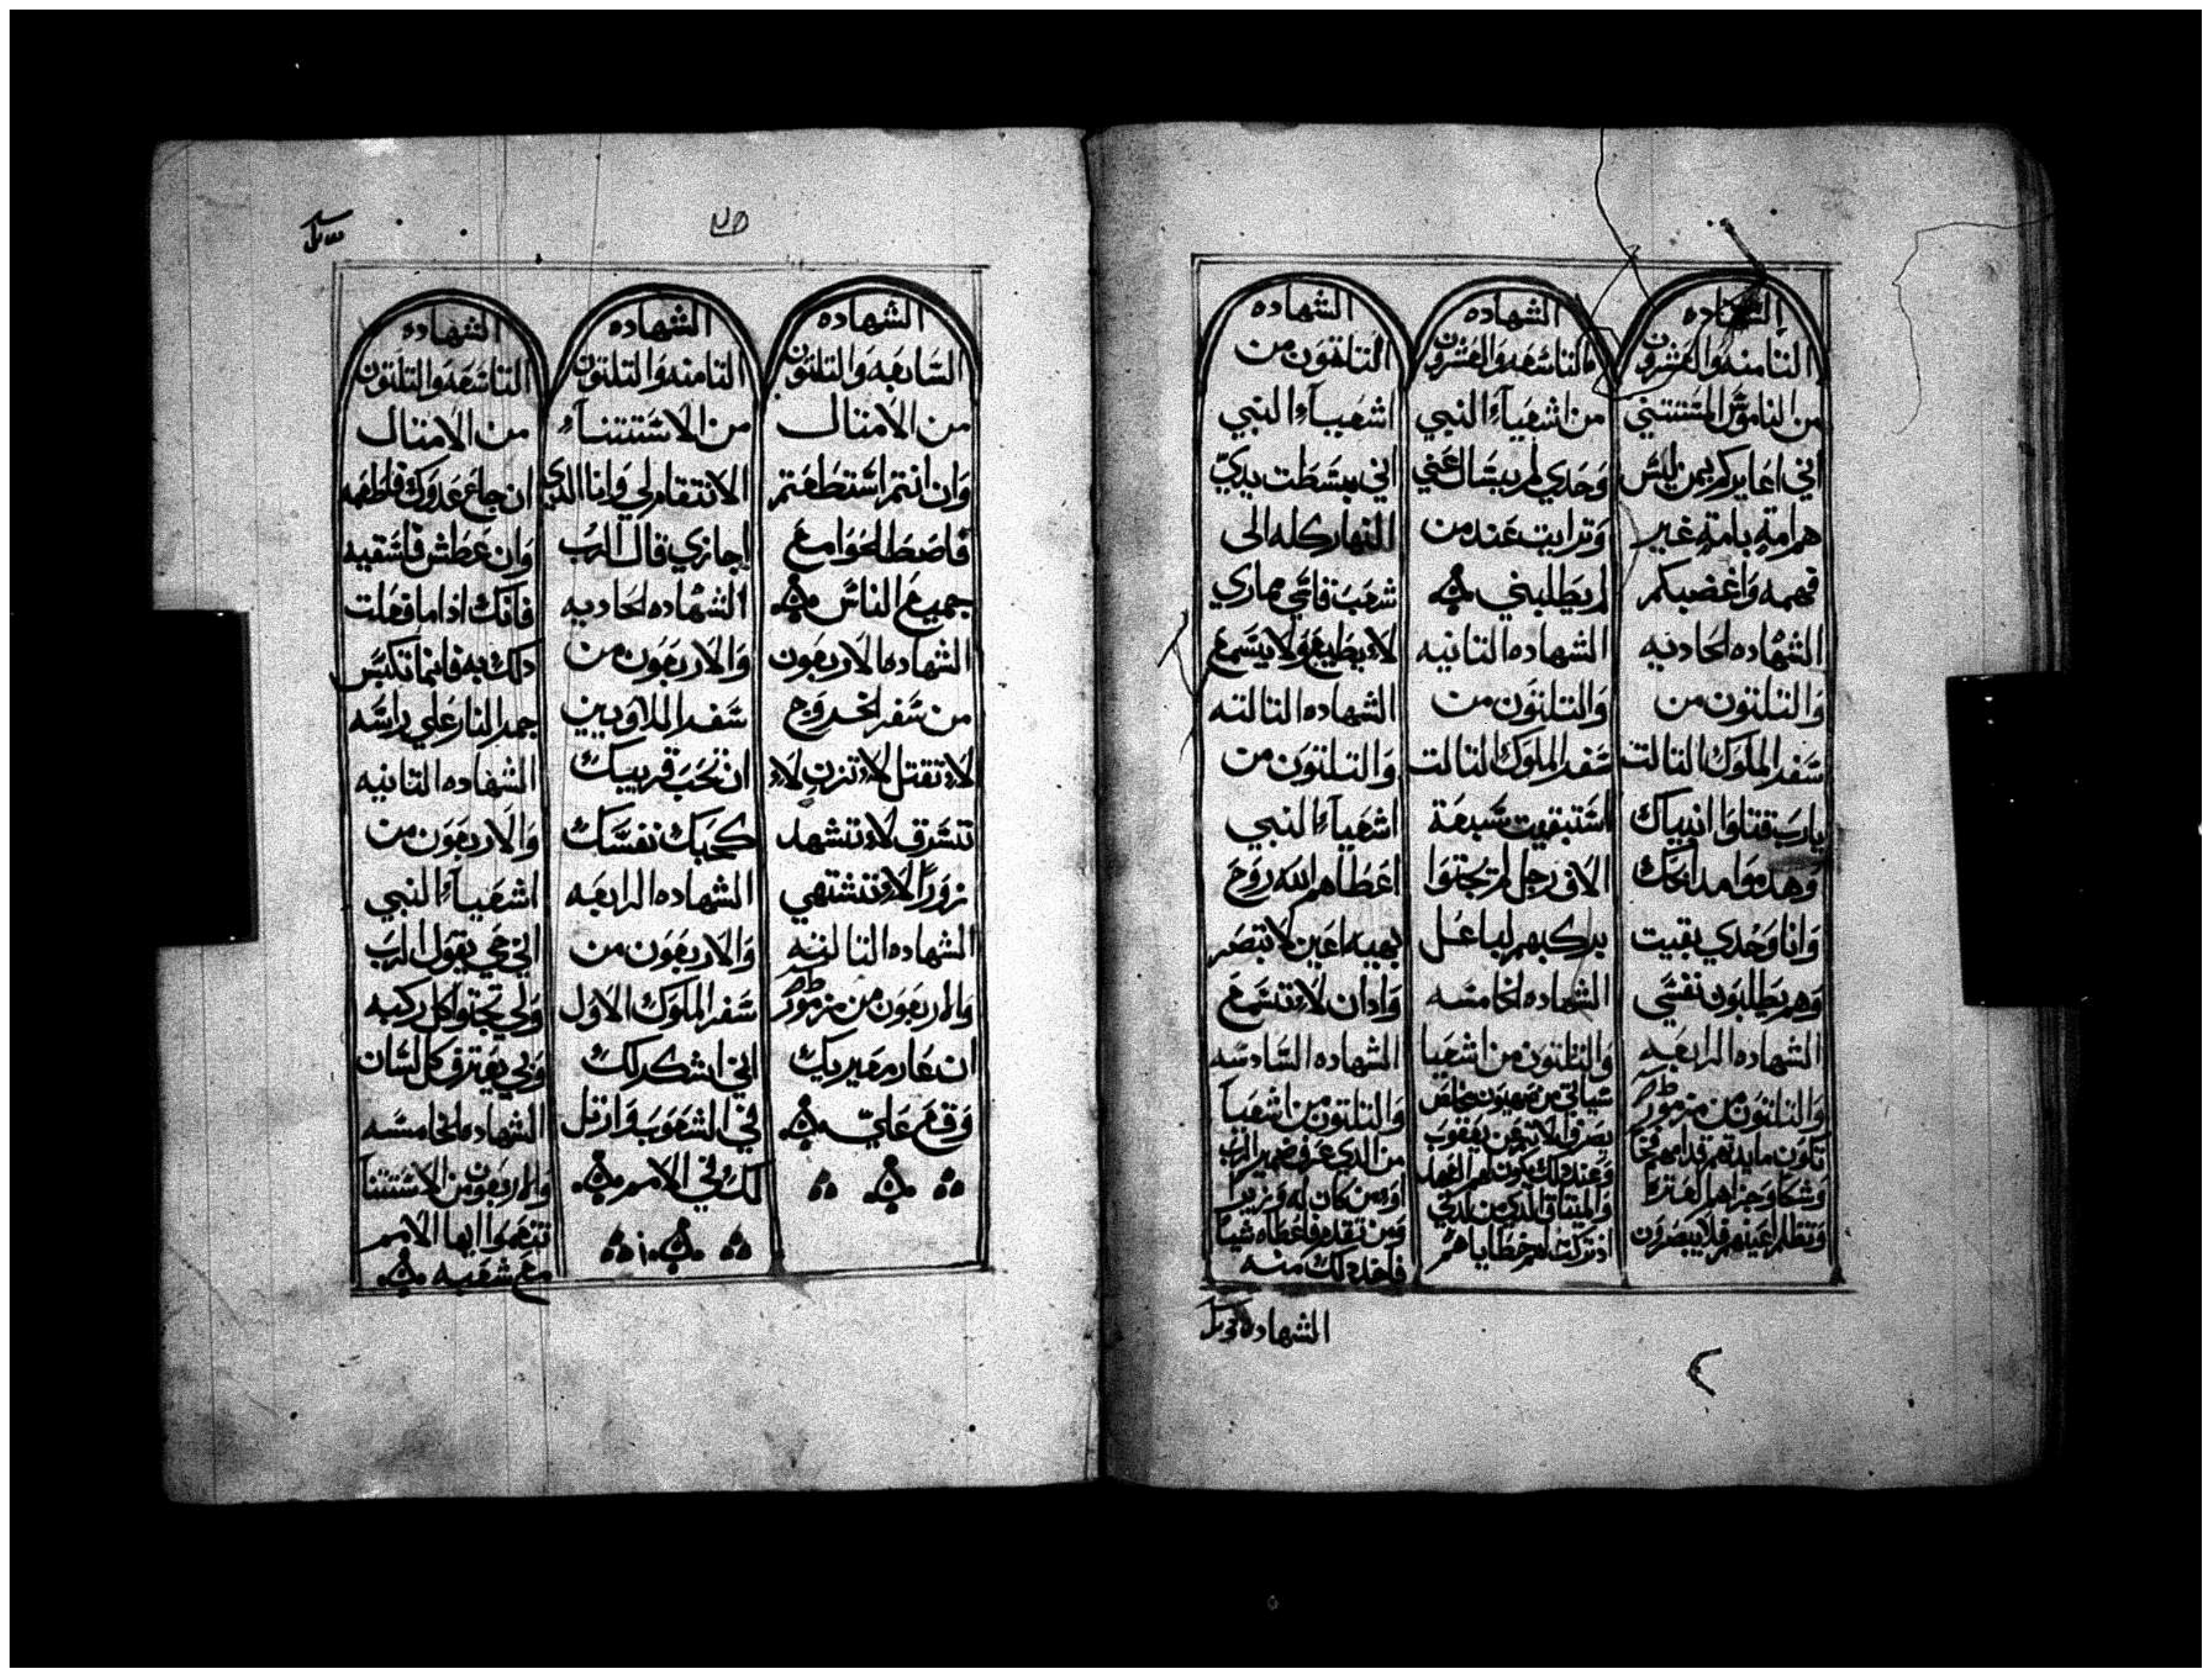 الشهاده
التامنه والعشرون
من الناموس المستتني
اني اعايركم بمن ليس
هم امةٍ بامةٍ غير
فهمه واغضبكم
الشهاده الحاديه
والتلتون من
سفر الملوك التالت
يارب قتلوا انبياك
وهدموا مدابحك
وانا وحدي بقيت
وهم يطلبون نفسي
الشهاده الرابعه
والتلتون من مزمور
تكون مايدتهم قدامهم فخا
وشكا وجزاهم لعترة
وتظلم اعينهم فلا يبصرون
الشهاده
التاسعه والعشرون
من اشعيآء النبي
وَحدي لم يسال عني
وترايت عند من
لم يطلبني
الشهاده التانيه
والتلتون من
سفر الملوك التالت
استبقيت سبعة
الاف رجل لم يجتوا
بركبهم لباعل
الشهاده الخامسه
والتلتون من اشعيا
سياتي من صهيون مخلص
يصرف الاتم عن يعقوب
وعند دلك يكون لهم العهد
والميتاق الذي من لدني
اذ تركت لهم خطاياهم
الشهاده
التلتون من
اشعيآء النبي
اني بسطت يديّ
النهار كله الى
شعب قاسي مماري
لا يطيع ولا يسمع
الشهاده التالته
والتلتون من
اشعيآء النبي
اعطاهم الله روح
بهيه اعين لا تبصر
وادان لا تسمع
الشهاده السادسه
والتلتون من اشعيآ
من الدي عرف ضمير الرب
اومن كان له وزيرا
ومن تقدم فاعطاه شيا
فاخد دلك منه
الشهاده
الشهاده
السابعه والتلتون
من الامتال
وان انتم استطعتم
فاصطلحوا مع
جميع الناس
الشهاده الاربعون
من سفر الخروج
لا تقتل لا تزن لا
تسرق لا تشهد
زورًا لا تشتهي
الشهاده التالته
والاربعون من مزمور
ان عار معيريك
وقع عليّ
الشهاده
التامنه والتلتون
من الاستتنآء
الانتقام لي وانا الدي
اجازي قال الرب
الشهاده الحاديه
والاربعون من
سفر اللاويين
ان تحب قريبك
كحبك نفسك
الشهاده الرابعه
والاربعون من
سفر الملوك الاول
اني اشكر لك
في الشعوب وارتل
لك في الامم
الشهاده
التاسعه والتلتون
من الامتال
ان جاع عدوك فاطعمه
وان عطش فاسقيه
فانك اذا ما فعلت
دلك به فانما تكبس
جمر النار على راسه
الشهاده التانيه
والاربعون من
اشعيآء النبي
اني حي يقول الرب
ولي تجتوا كل ركبه
وبي يعترف كل لسان
الشهاده الخامسه
والاربعون من الاستتنآ
تنعموا ايها الامم
مع شعبه